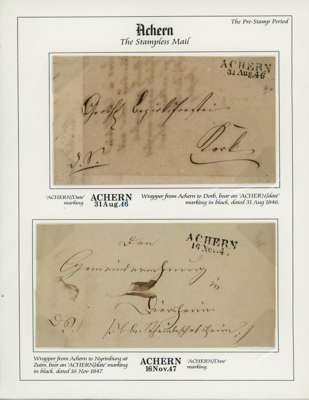 The Pre-Stamp Period
Achern
The Stampless Mail
ACHERN
31 Aug. 46
Kork
d. S.
'ACHERN/Date'
marking
ACHERN
31 Aug. 46
Wrapper from Achern to Dorb, bear an 'ACHERN/date'
marking in black, dated 31 Aug 1846.
ACHERN
16 Nov. 47
Den
in
Wrapper from Achern to Nyrinburg at
Zuim, bear an 'ACHERN/date' marking
in black, dated 16 Nov 1847.
ACHERN
16 Nov. 47
'ACHERN/Date'
marking